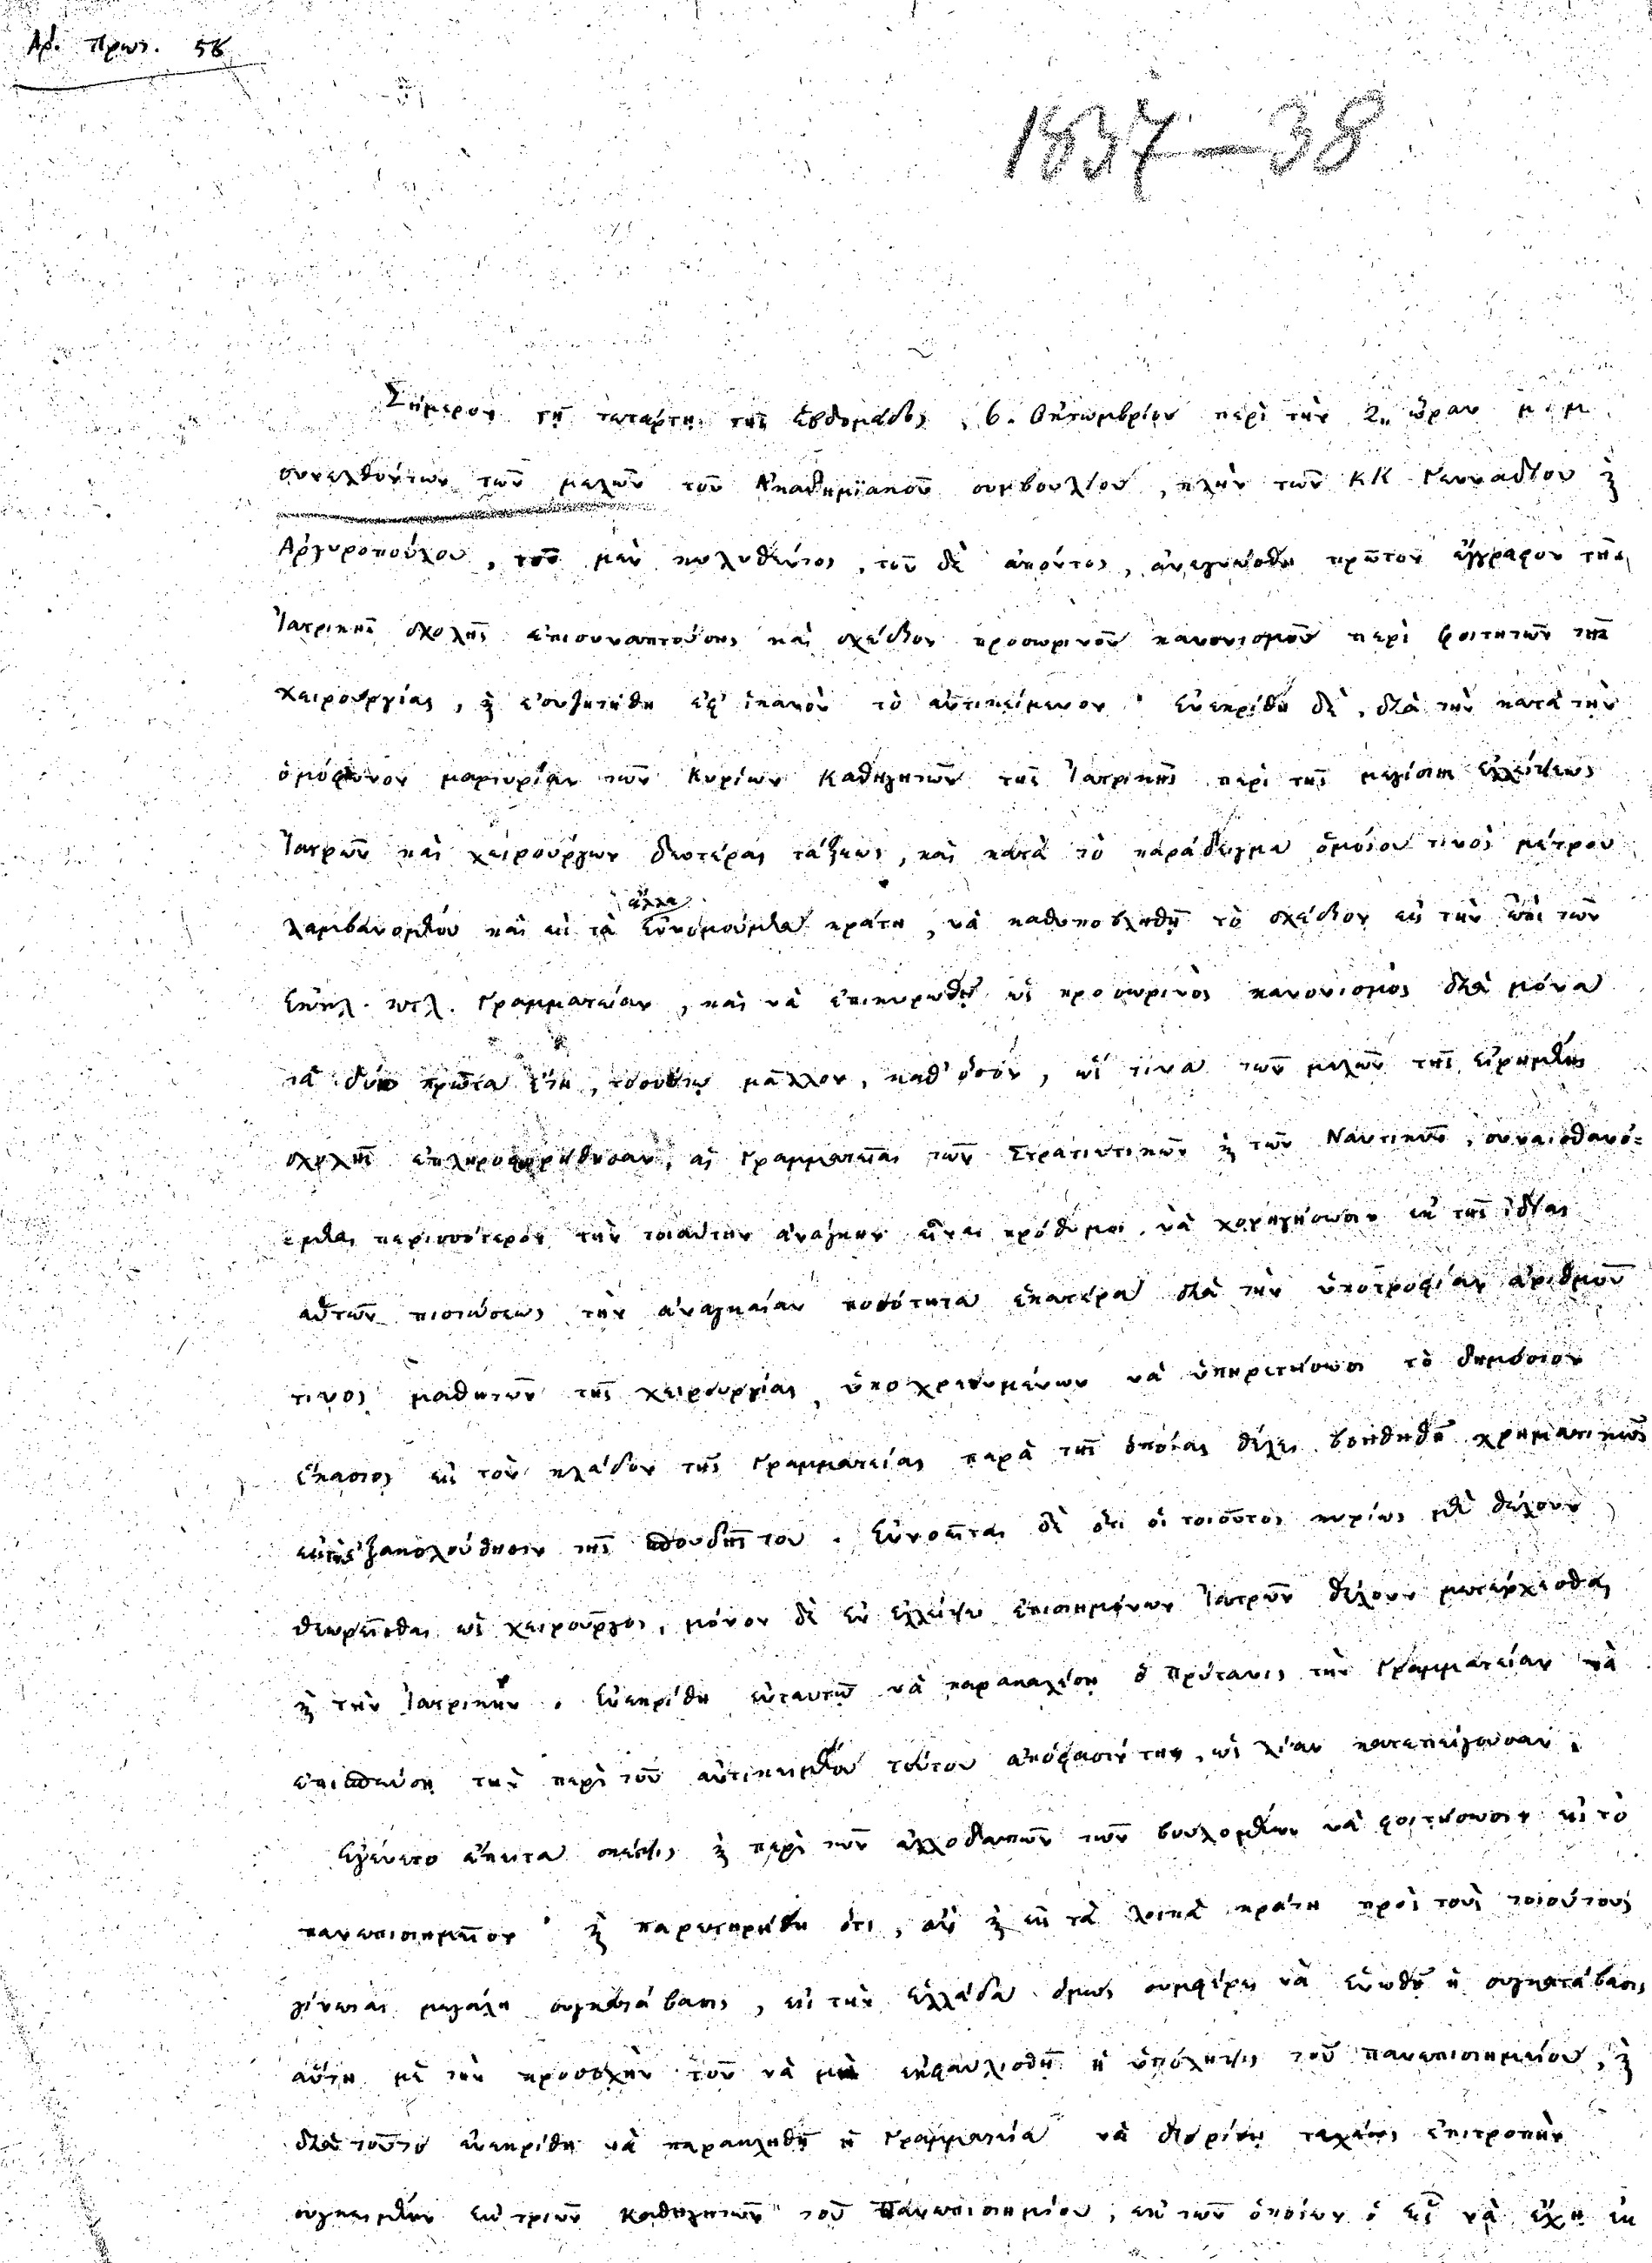 Αρ. Πρωτ. 58
1837–38
Σήμερον τῇ τετάρτῃ τῆς ἑβδομάδος, 6. Ὀκτωμβρίου περὶ τὴν 2. ὥραν μ. μ.
συνελθόντων τῶν μελῶν τοῦ Ἀκαδημϊακοῦ συμβουλίου, πλὴν τῶν ΚΚ Γενναδίου ϗ
Ἀργυροπούλου, τοῦ μὲν κωλυθέντος, τοῦ δὲ ἀπόντος, ἀνεγνώσθη πρῶτον ἔγγραφον τῆς
Ἰατρικῆς σχολῆς ἐπισυναπτούσης καὶ σχέδιον προσωρινοῦ κανονισμοῦ περὶ φοιτητῶν τῆς
χειρουργίας, ϗ ἐσυζητήθη ἐφ' ἱκανὸν τὸ ἀντικείμενον· ἐνεκρίθη δὲ, διὰ τὴν κατὰ τὴν
ὁμόφωνον μαρτυρίαν τῶν Κυρίων Καθηγητῶν τῆς Ἰατρικῆς περὶ τῆς μεγίστης ἐλλείψεως
Ἰατρῶν καὶ χειρούργων δευτέρας τάξεως, καὶ κατὰ τὸ παράδειγμα ὁμοίου τινὸς μέτρου
λαμβανομένου καὶ εἰς τὰ ἄλλα εὐνομούμενα κράτη, νὰ καθυποβληθῇ τὸ σχέδιον εἰς τὴν ἐπὶ τῶν
Ἐκκλ. κτλ. Γραμματείαν, καὶ νὰ ἐπικυρωθῇ ὡς προσωρινὸς κανονισμὸς διὰ μόνα
τὰ δύο πρῶτα ἔτη, τοσούτῳ μᾶλλον, καθ' ὅσον, ὥς τινα τῶν μελῶν τῆς εἰρημένης
σχολῆς ἐπληροφορήθησαν, αἱ Γραμματεῖαι τῶν Στρατιωτικῶν ϗ τῶν Ναυτικῶν, συναισθανό=
=μεναι περισσότερον τὴν τοιαύτην ἀνάγκην εἶναι πρόθυμοι νὰ χορηγήσωσιν ἐκ τῆς ἰδίας
αὑτῶν πιστώσεως τὴν ἀναγκαίαν ποσότητα ἑκατέρα διὰ τὴν ὑποτροφίαν ἀριθμοῦ
τινος μαθητῶν τῆς χειρουργίας, ὑποχρεουμένων νὰ ὑπηρετήσωσι τὸ δημόσιον
ἕκαστος εἰς τὸν κλάδον τῆς Γραμματείας παρὰ τῆς ὁποίας θέλει βοηθηθῆ χρηματικῶς
εἰς τὴν ἐξακολούθησιν τῆς σπουδῆς του. Ἐννοεῖται δὲ ὅτι οἱ τοιοῦτοι κυρίως μὲν θέλουν
θεωρεῖσθαι ὡς χειροῦργοι, μόνον δὲ ἐν ἐλλείψει ἐπιστημόνων Ἰατρῶν θέλουν μετέρχεσθαι
ϗ τὴν Ἰατρικήν. Ἐνεκρίθη ἐνταυτῷ νὰ παρακαλέσῃ ὁ Πρύτανις τὴν Γραμματείαν νὰ
ἐπισπεύσῃ τὴν περὶ τοῦ ἀντικειμένου τούτου ἀπόφασίν της, ὡς λίαν κατεπείγουσαν.
Ἐγένετο ἔπειτα σκέψις ϗ περὶ τῶν ἀλλοδαπῶν τῶν βουλομένων νὰ φοιτήσωσιν εἰς τὸ
πανεπιστημεῖον· ϗ παρετηρήθη ὅτι, ἂν ϗ εἰς τὰ λοιπὰ κράτη πρὸς τοὺς τοιούτους
γίνεται μεγάλη συγκατάβασις, εἰς τὴν Ἑλλάδα ὅμως συμφέρει νὰ ἑνωθῇ ἡ συγκατάβασις
αὕτη μὲ τὴν προσοχὴν τοῦ νὰ μὴ ἐκφαυλισθῇ ἡ ὑπόληψις τοῦ πανεπιστημείου, ϗ
διὰ τοῦτο ἐνεκρίθη νὰ παρακληθῇ ἡ Γραμματεία νὰ διορίσῃ ταχέως ἐπιτροπὴν
συγκειμένην ἐκ τριῶν Καθηγητῶν τοῦ Πανεπιστημίου, ἐκ τῶν ὁποίων ὁ εἷς νὰ ἔχῃ ἐκ